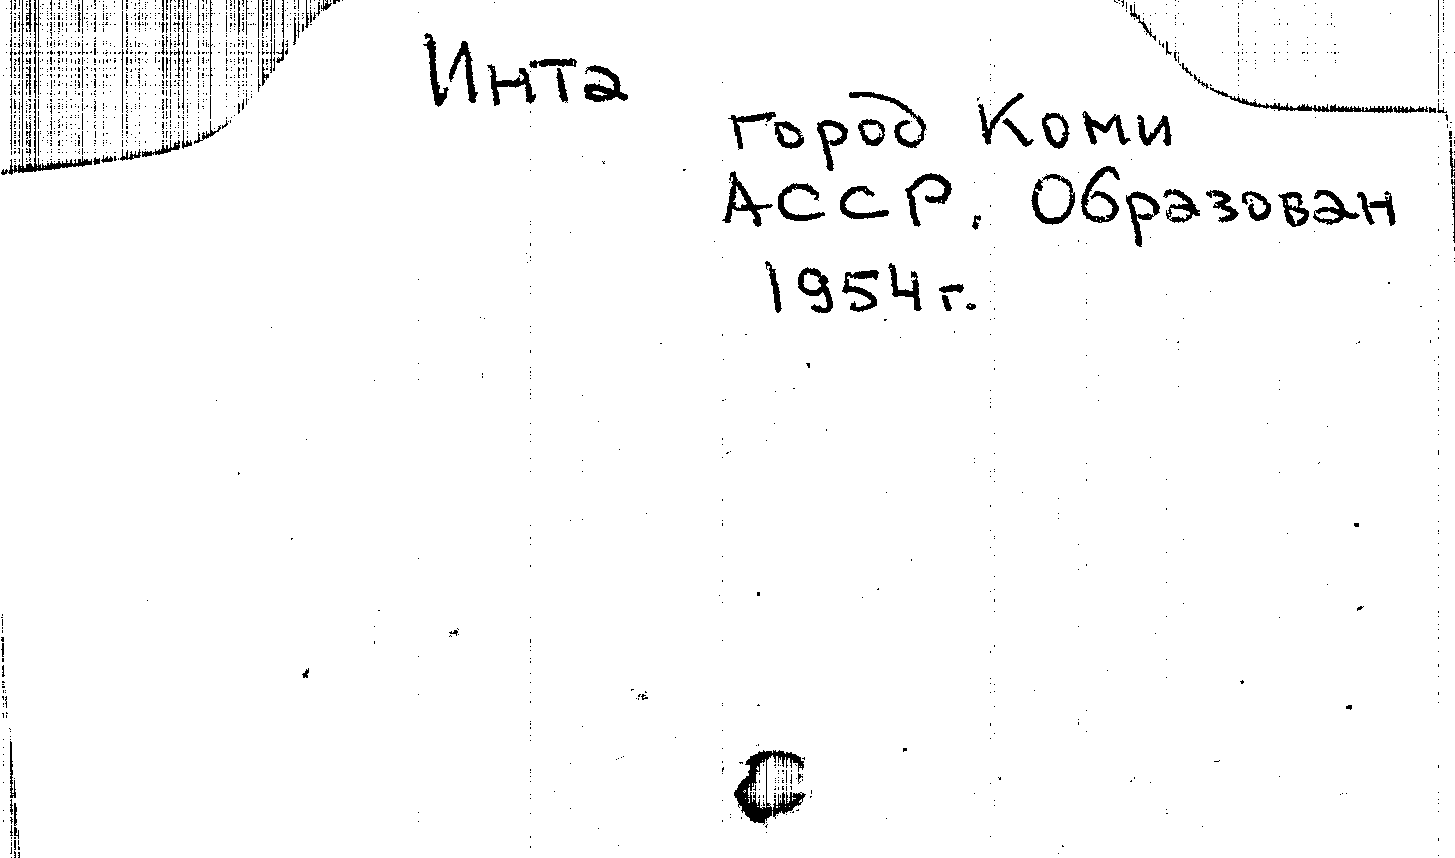 Инта
город Коми
АССР. Образован
1954 г.